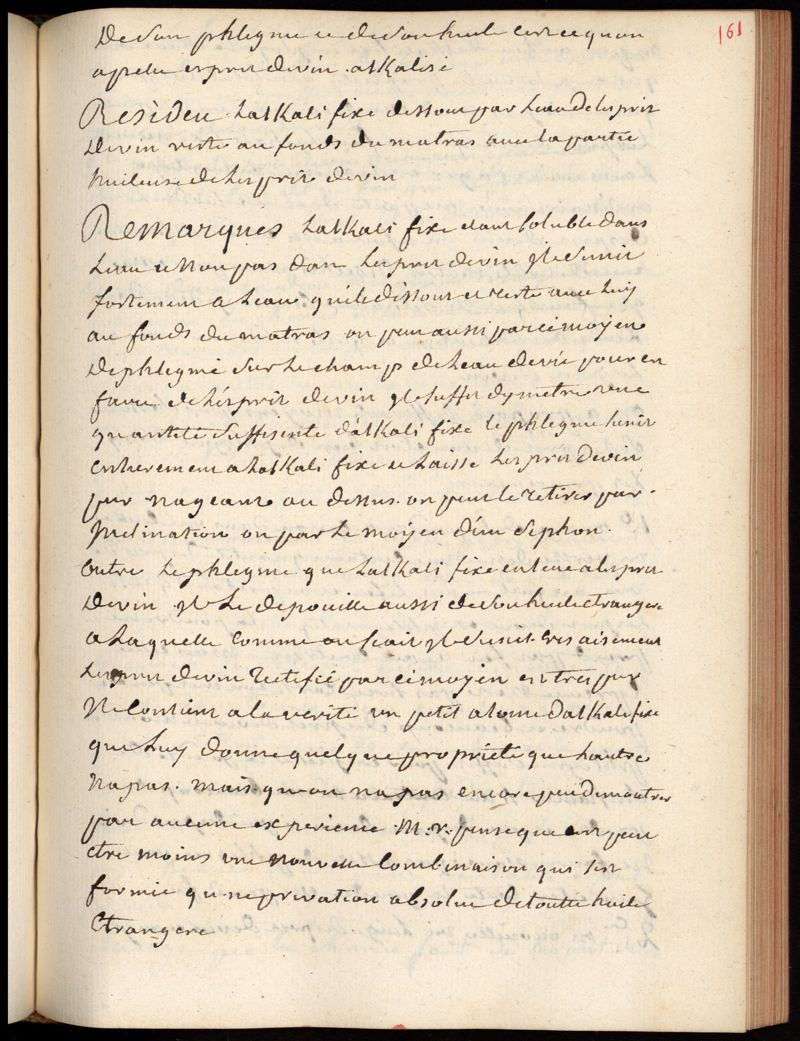 161
De son phlegme et de son huile c'est ce quon
apelle esprit de vin alkalisé
Resideu Lalkali fixe dessout par Leau de lesprit
De vin reste au fonds du matras avec la partie
huileuse de Lesprit de vin
Remarques Lalkali fixe etant soluble dans
Leau et Non pas dans Lesprit de vin yl se unit
fortement a Leau quil dissout et reste avec Luy
au fonds du matras on peut aussi par ce moyen
Dephlegmé sur Le champ de Leau de vie pour en
faire de Lésprit de vin yl suffit dy metre une
quantité suffisente d'alkali fixe le phlegme sunit
entierement a Lalkali fixe et Laisse Lesprit de vin
pur nageant au dessus. on peut le retirer par
Inclination ou par Le moÿen d'un sephon.
Outre Le phlegme que Lalkali fixe enleve a lesprit
De vin yl Le depouille aussi de son huile etrangere
a Laquelle comme on scait yl s'unit tres aisement
Lesprit de vin Rectifié par ce moÿen est tres pur
Ne Contient a la verité un petit atome dalkali fixe
que Luy donne quelque propriété que Lautre
Na pas. mais quon na pas encore peu demontrer
par aucune experience M.r. pense que cest peut
etre moins une nouvelle Combinaison qui sest
formée qu une privation absolue de toutte huile
Etrangere